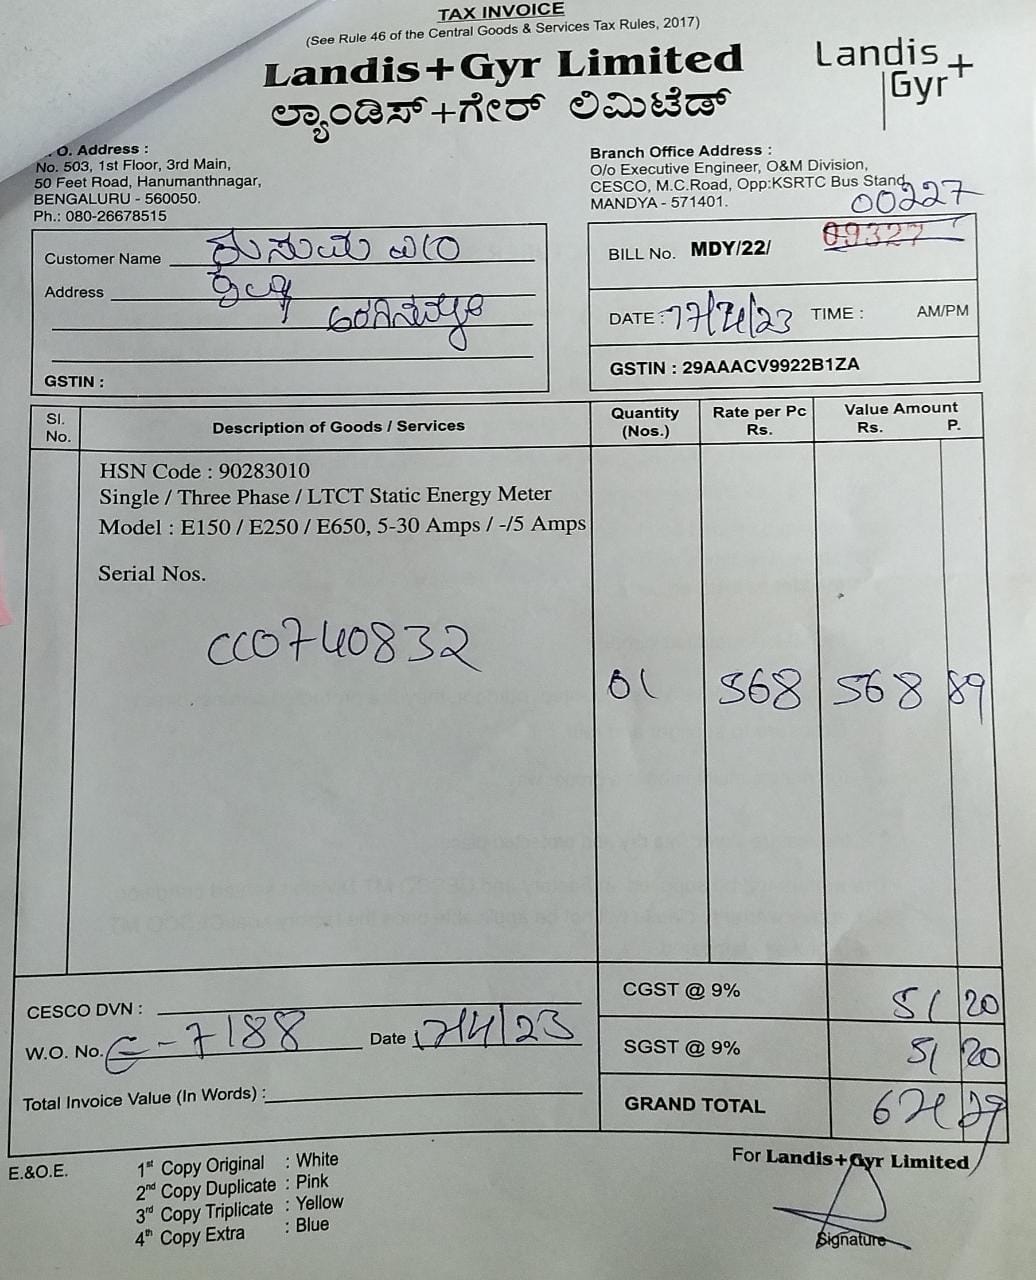 TAX INVOICE
(See Rule 46 of the Central Goods & Services Tax Rules, 2017)
Landis+Gyr Limited
ಲ್ಯಾಂಡಿಸ್+ಗೇರ್ ಲಿಮಿಟೆಡ್
Landis
Gyr+
O. Address :
No. 503, 1st Floor, 3rd Main,
50 Feet Road, Hanumanthnagar,
BENGALURU - 560050.
Ph.: 080-26678515
Branch Office Address :
O/o Executive Engineer, O&M Division,
CESCO, M.C.Road, Opp:KSRTC Bus Stand,
MANDYA - 571401.
00227
Customer Name
Address
GSTIN :
BILL No. MDY/22/ 09327
DATE : 17/4/23 TIME : AM/PM
GSTIN : 29AAACV9922B1ZA
Sl. No. Description of Goods / Services Quantity (Nos.) Rate per Pc Rs. Value Amount Rs. P.
HSN Code : 90283010
Single / Three Phase / LTCT Static Energy Meter
Model : E150 / E250 / E650, 5-30 Amps / -/5 Amps
Serial Nos.
CC0740832
01 568 568 89
CESCO DVN :
W.O. No. E-7188 Date 17/4/23
Total Invoice Value (In Words) :
CGST @ 9% 51 20
SGST @ 9% 51 20
GRAND TOTAL 671 29
E.&O.E.
1st Copy Original : White
2nd Copy Duplicate : Pink
3rd Copy Triplicate : Yellow
4th Copy Extra : Blue
For Landis+Gyr Limited
Signature